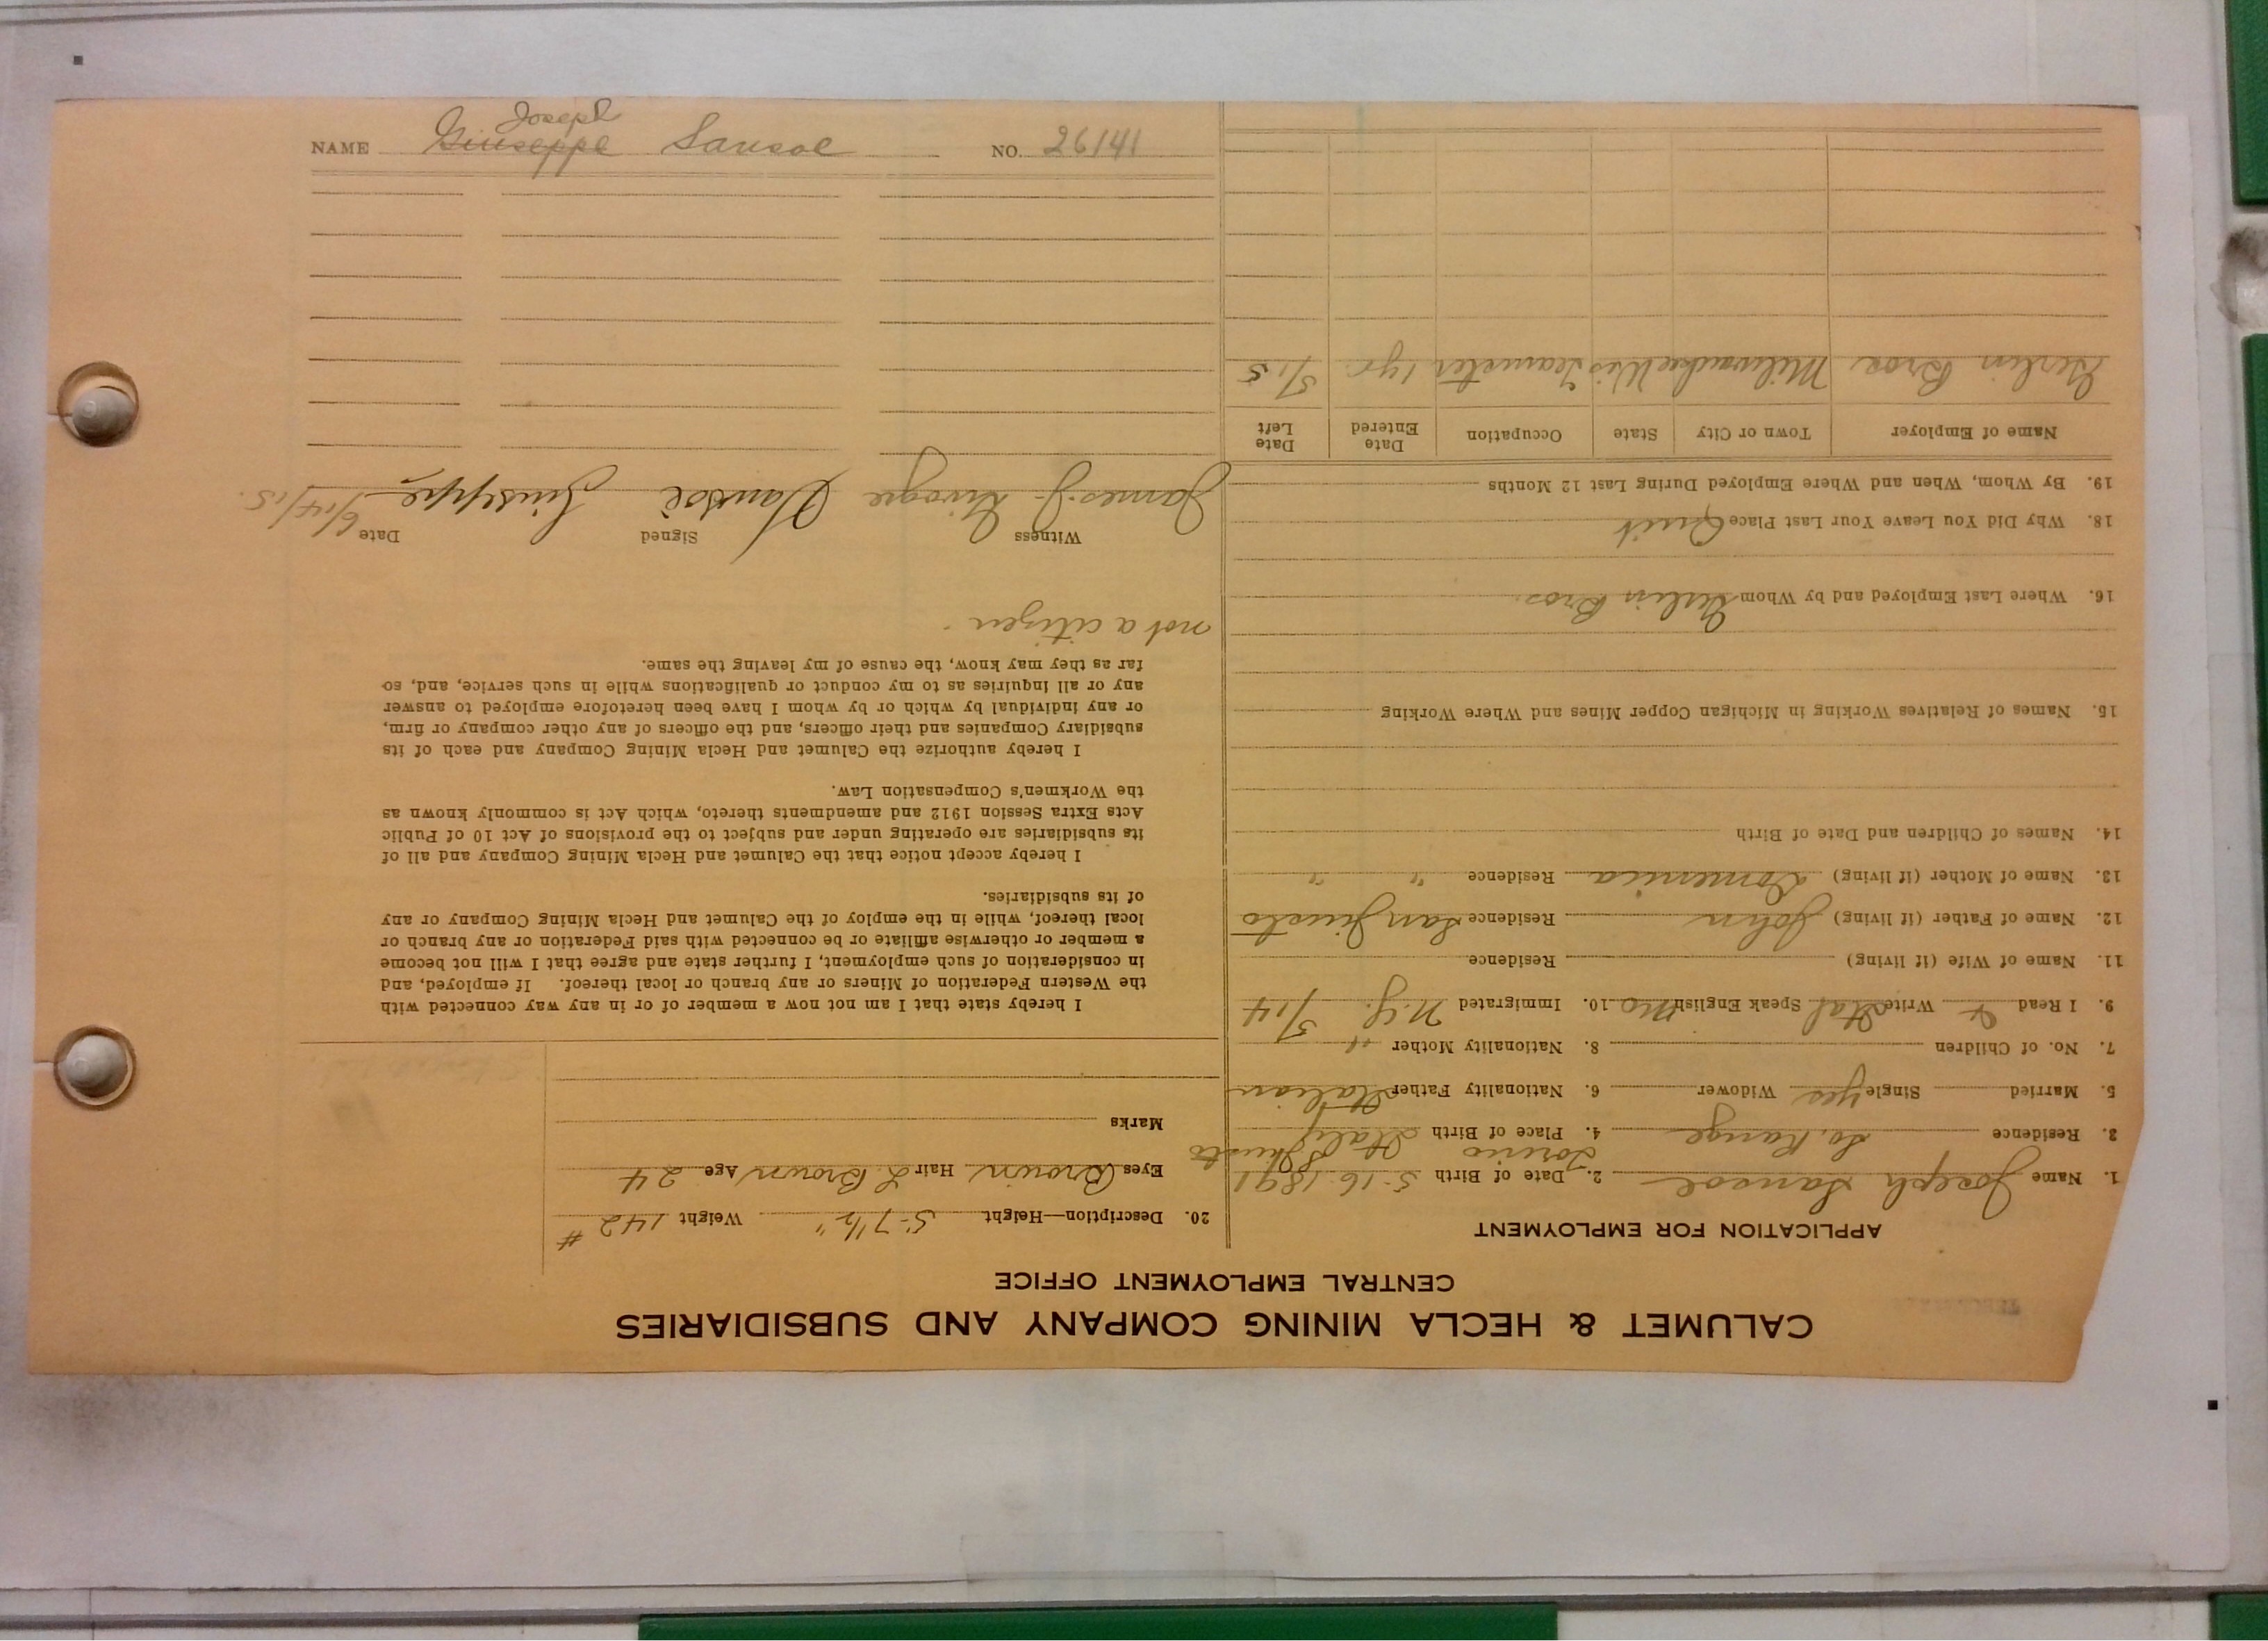 CALUMET & HECLA MINING COMPANY AND SUBSIDIARIES
CENTRAL EMPLOYMENT OFFICE
APPLICATION FOR EMPLOYMENT
1. Name Joseph Sansoe 2. Date of Birth 5-16-1891
3. Residence So. Range 4. Place of Birth Torino Italy S Giusto
5. Married Single yes Widower 6. Nationality Father Italian
7. No. of Children 8. Nationality Mother "
9. I Read & Write Ital Speak English no 10. Immigrated N.Y. 5/14
11. Name of Wife (if living) Residence
12. Name of Father (if living) John Residence San Giusto
13. Name of Mother (if living) Domenica Residence " "
14. Names of Children and Date of Birth
15. Names of Relatives Working in Michigan Copper Mines and Where Working
16. Where Last Employed and by Whom Gerlin Bros.
18. Why Did You Leave Your Last Place Quit
19. By Whom, When and Where Employed During Last 12 Months
Name of Employer Town or City State Occupation Date Entered Date Left
Gerlin Bros. Milwaukee Wis Teamster 1 yr 5/15
20. Description—Height 5-7 1/2" Weight 142 #
Eyes Brown Hair L Brown Age 24
Marks
I hereby state that I am not now a member of or in any way connected with
the Western Federation of Miners or any branch or local thereof. If employed, and
in consideration of such employment, I further state and agree that I will not become
a member or otherwise affiliate or be connected with said Federation or any branch or
local thereof, while in the employ of the Calumet and Hecla Mining Company or any
of its subsidiaries.
I hereby accept notice that the Calumet and Hecla Mining Company and all of
its subsidiaries are operating under and subject to the provisions of Act 10 of Public
Acts Extra Session 1912 and amendments thereto, which Act is commonly known as
the Workmen's Compensation Law.
I hereby authorize the Calumet and Hecla Mining Company and each of its
subsidiary Companies and their officers, and the officers of any other company or firm,
or any individual by which or by whom I have been heretofore employed to answer
any or all inquiries as to my conduct or qualifications while in such service, and, so
far as they may know, the cause of my leaving the same.
not a citizen.
Witness Signed Date
James J. Sansoè Giuseppe 6/14/15.
NAME Giuseppe Joseph Sansoe NO. 26141